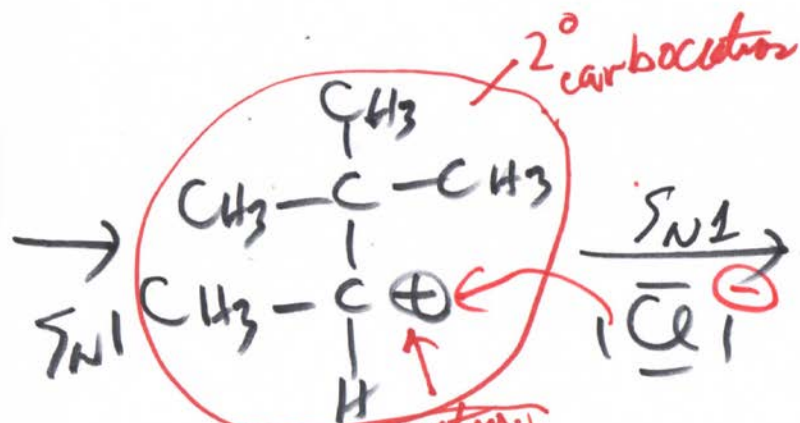 2° carbocation
CH3
CH3—C—CH3
SN1
CH3—C ⊕
SN1
Cl ⊖
H